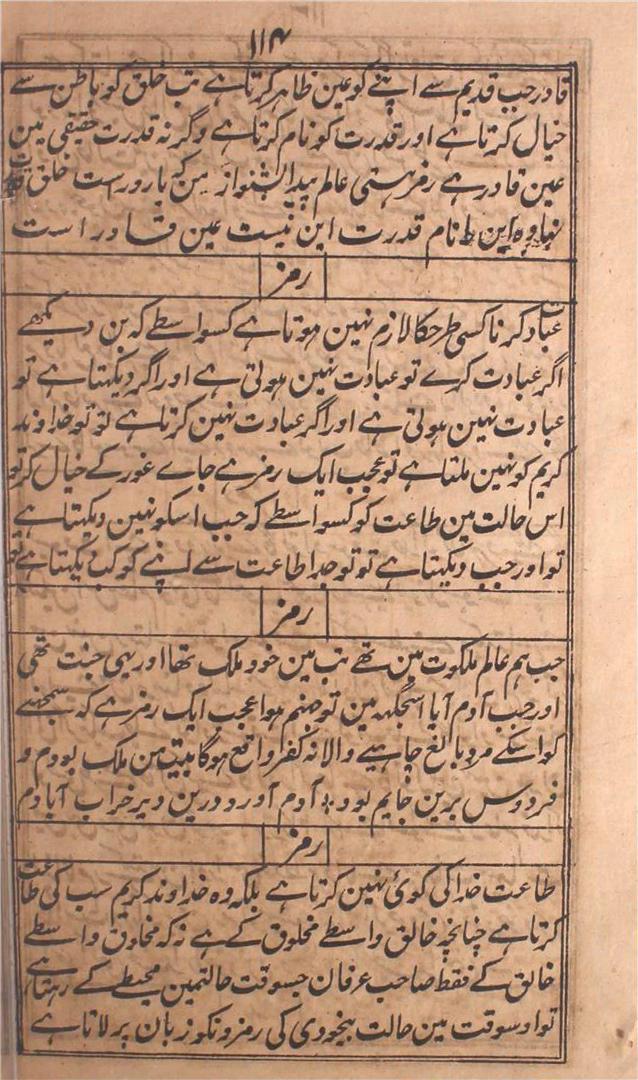 ۱۱۴
قادر جب قدیم سے اپنے کو عین ظاہر کرتا ہے تب خلق کو باطن سے
خیال کرتا ہے اور قدرت کو نام کرتا ہے وگرنہ قدرت حقیقی مین
عین قادر ہے رمز ہستی عالم پیدا من کہ یار ورست خلق
نہادہ این نام قدرت این نیست عین قادر است
رمز
عبادت کرنا کسی طرحکا لازم نہین ہوتا ہے کسواسطے کہ بن دیکھے
اگر عبادت کرے تو عبادت نہین ہوتی ہے اور اگر دیکہتا ہے تو
عبادت نہین ہوتی ہے اور اگر عبادت نہین کرتا ہے تو تو خداوند
کریم کو نہین ملتا ہے تو عجب ایک رمز ہے جاے غور کے خیال کر تو
اس حالت مین طاعت کو کسواسطے کہ جب اسکو نہین دیکہتا ہے
تو اور جب دیکہتا ہے تو تو جدا طاعت سے اپنے کو کب دیکہتا ہے تو
رمز
جب ہم عالم ملکوت مین تھے تب مین خود ملک تھا اور یہی جنت تھی
اور جب آدم آیا اسجگہہ مین تو جہنم ہوا عجب ایک رمز ہے کہ سمجہنے
کو اسکے مرد بالغ چاہیے والا نہ کفر واقع ہوگا بیت من ملک بودم و
فردوس برین جایم بود ؛ آدم آورد درین دیر خراب آبادم
رمز
طاعت خدا کی کوئی نہین کرتا ہے بلکہ وہ خداوند کریم سب کی طاعت
کرتا ہے چنانچہ خالق واسطے مخلوق کے ہے نہ کہ مخلوق واسطے
خالق کے فقط صاحب عرفان جسوقت حالتمین محیطے کے رہتا ہے
تو اوسوقت مین حالت بیخودی کی رمزونکو زبان پر لاتا ہے